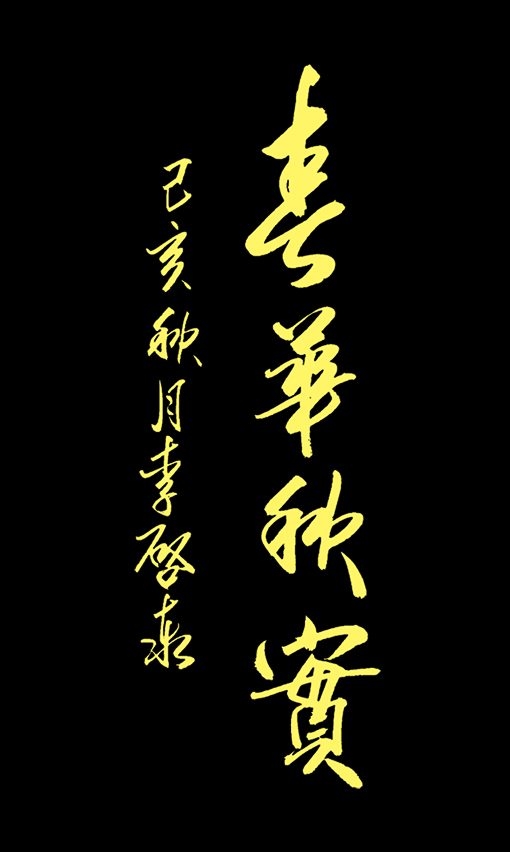 春華秋實
己亥秋月李啓泰